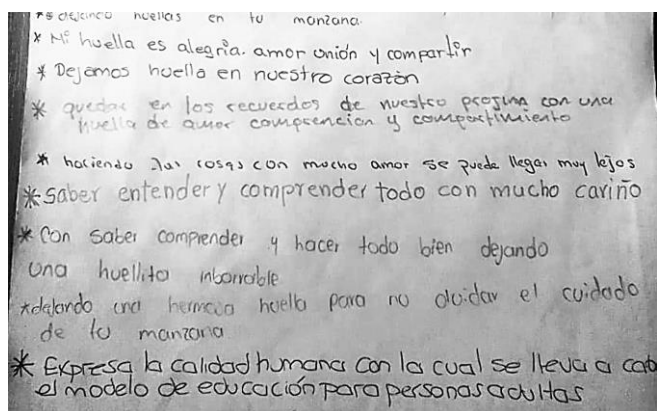 huellas en tu manzana.
* Mi huella es alegria. amor unión y compartir
* Dejamos huella en nuestro corazón
* quedar en los recuerdos de nuestro progima con una
huella de amor comprencion y compartimiento
* haciendo las cosas con mucho amor se puede llegar muy lejos
* Saber entender y comprender todo con mucho cariño
* Con saber comprender y hacer todo bien dejando
una huellita inborrable
* dejando una hermosa huella para no olvidar el cuidado
de tu manzana
* Expresa la calidad humana con la cual se lleva a cab
el modelo de educación para personas adultas